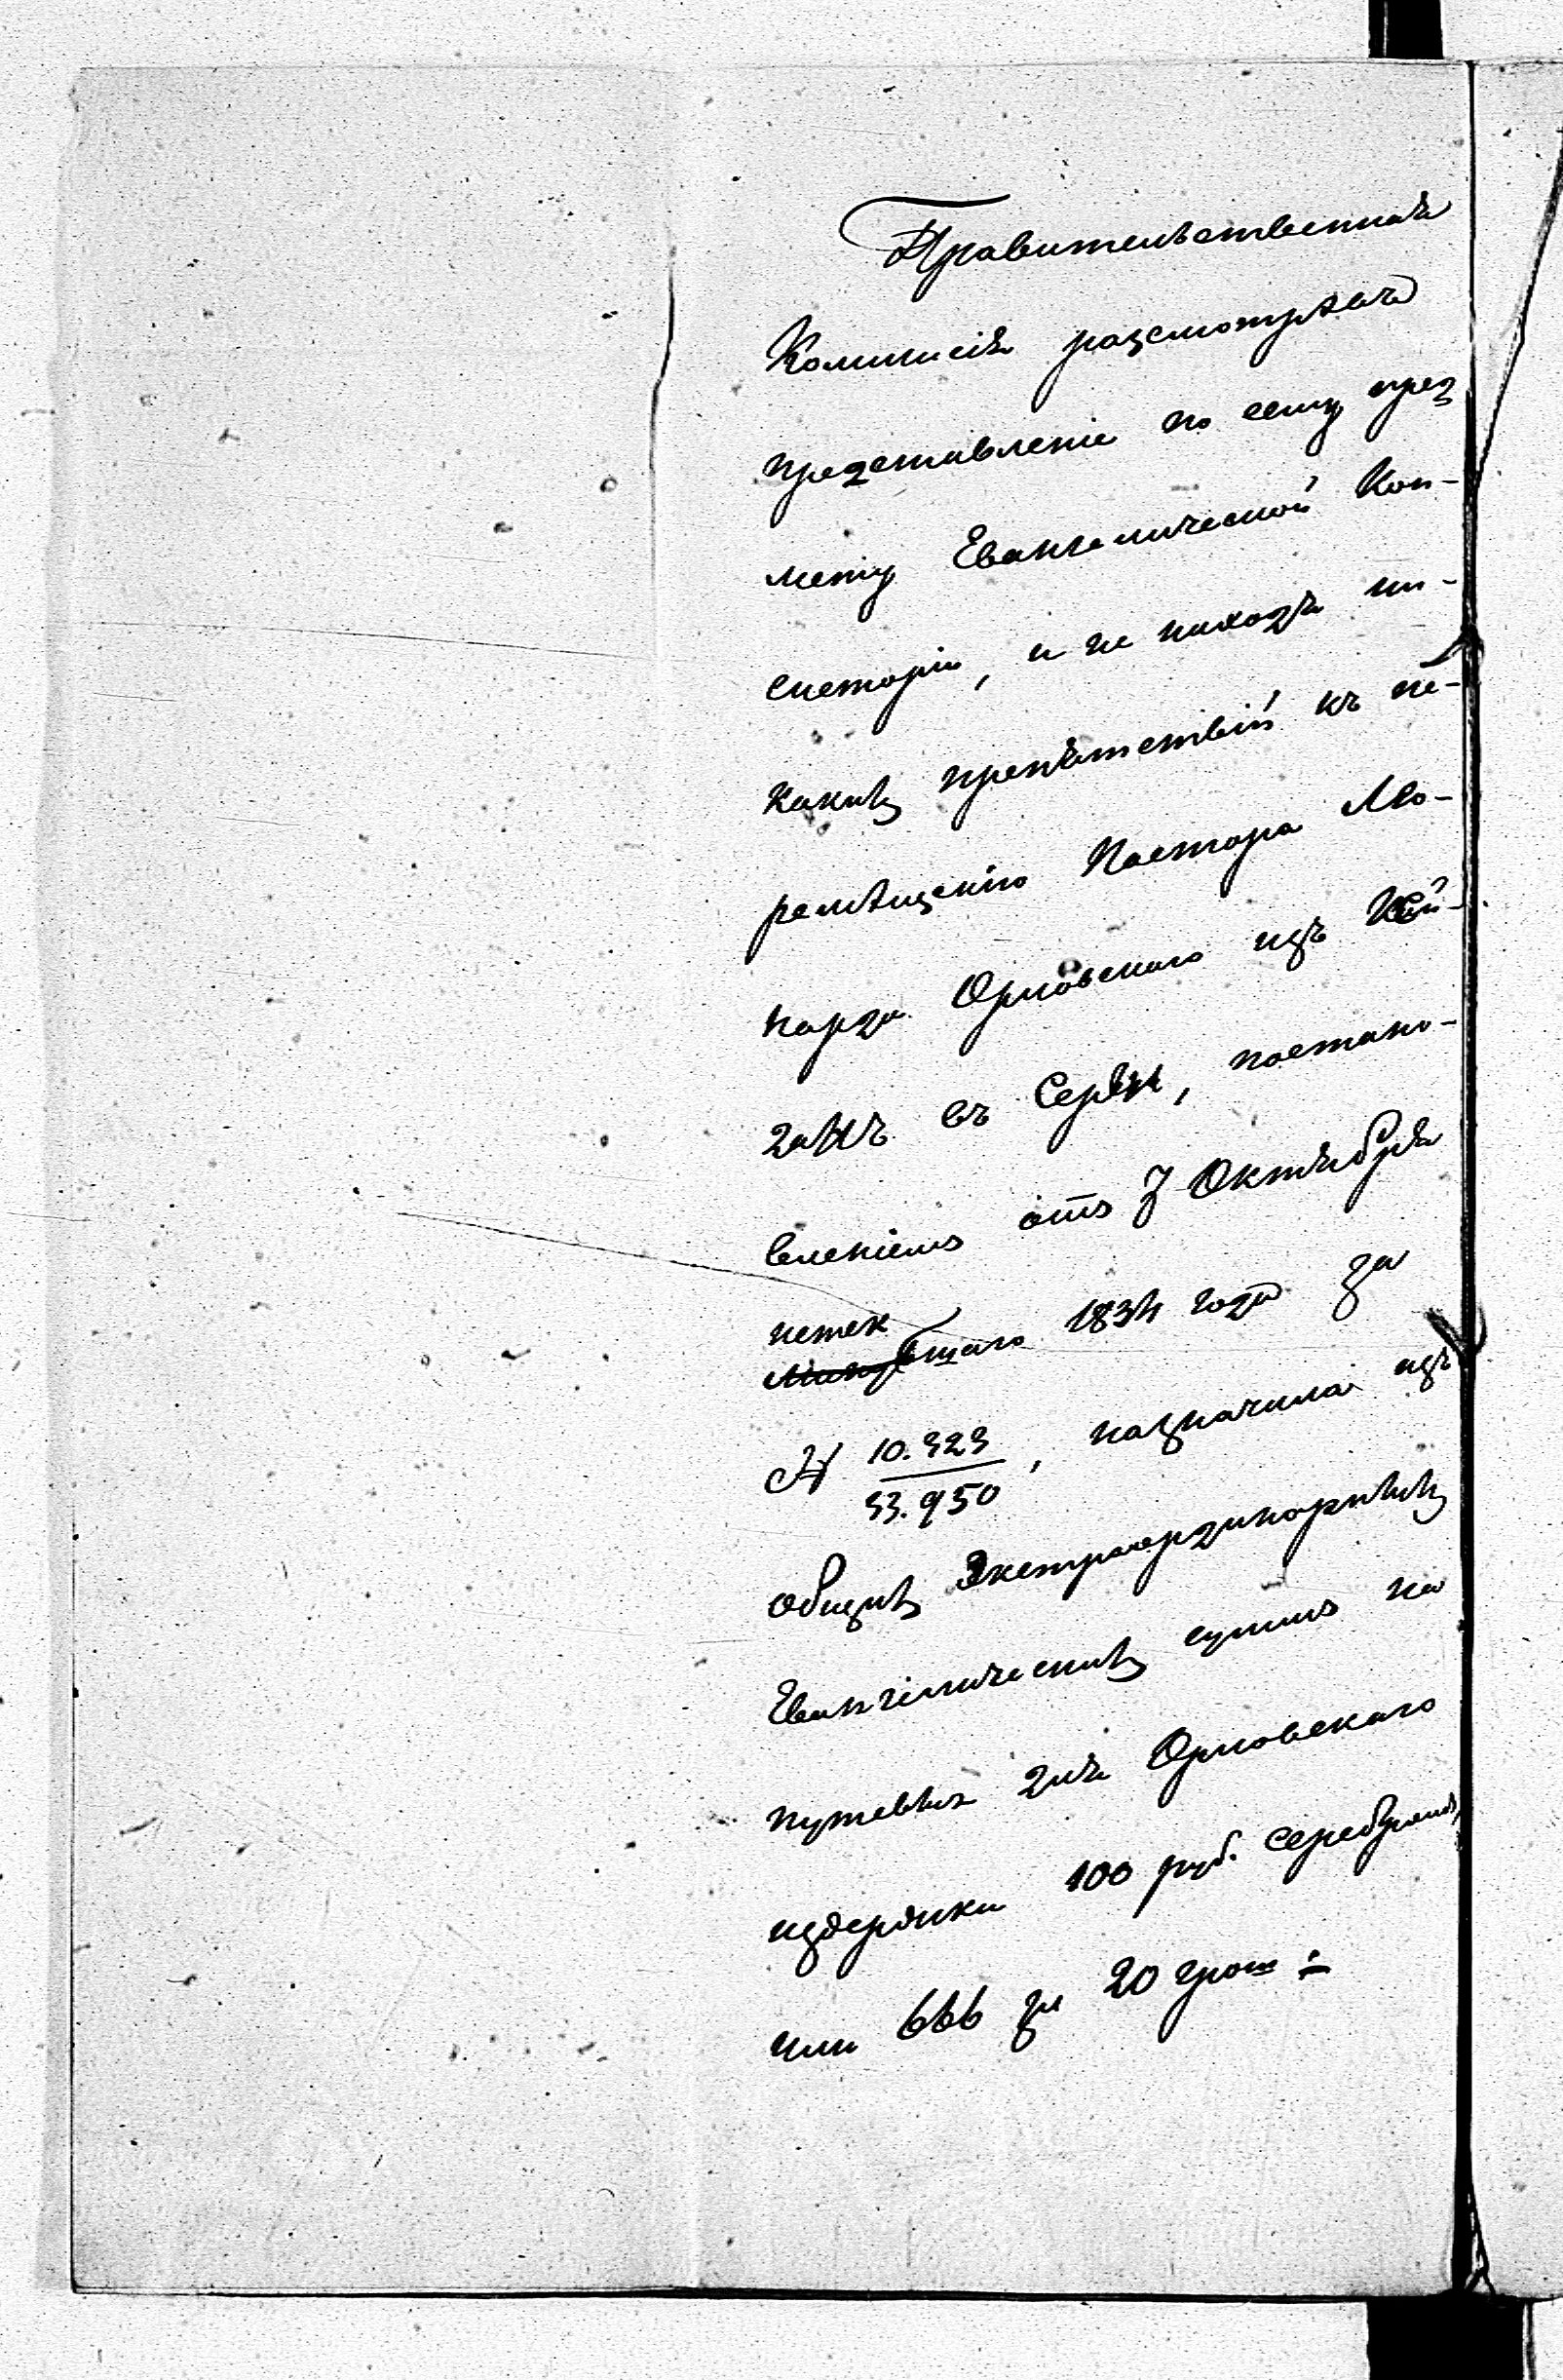 Правительственная
Коммисія разсмотрѣвъ
представленіе по сему пред
мету Евангелической Кон-
систоріи, и не находя ни-
какихъ препятствій къ пе-
ремѣщенію Пастора Лео-
нарда Орловскаго изъ Кай-
данъ въ Сереи, постано-
вленіемъ отъ 7 Октября
истек
минувшаго 1834 года за
№ 10.323
53.950, назначила изъ
общихъ Экстраординарныхъ
Евангелическихъ суммъ на
путевыя для Орловскаго
издержки 100 руб. серебромъ,
или 666 зл 20 грош